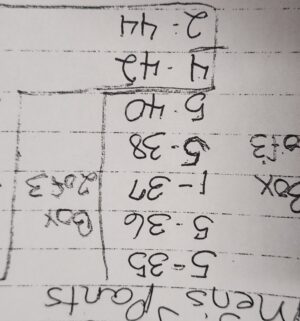 mens Pants
5-35
Box 5-36
2 of 3 1-37 Box
5-38 of 3
5-40
4-42
2-44